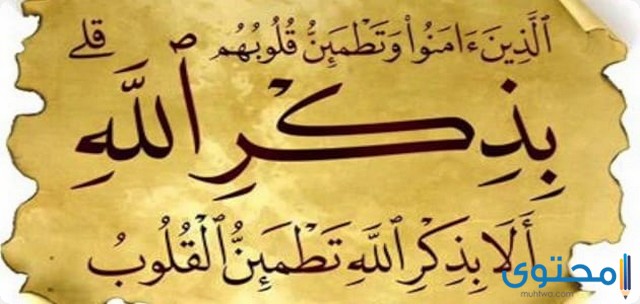 ٱلَّذِينَ ءَامَنُوا۟ وَتَطْمَئِنُّ قُلُوبُهُم قلے
بِذِكْرِ ٱللَّهِ
أَلَا بِذِكْرِ ٱللَّهِ تَطْمَئِنُّ ٱلْقُلُوبُ
محتوى
muhtwa.com